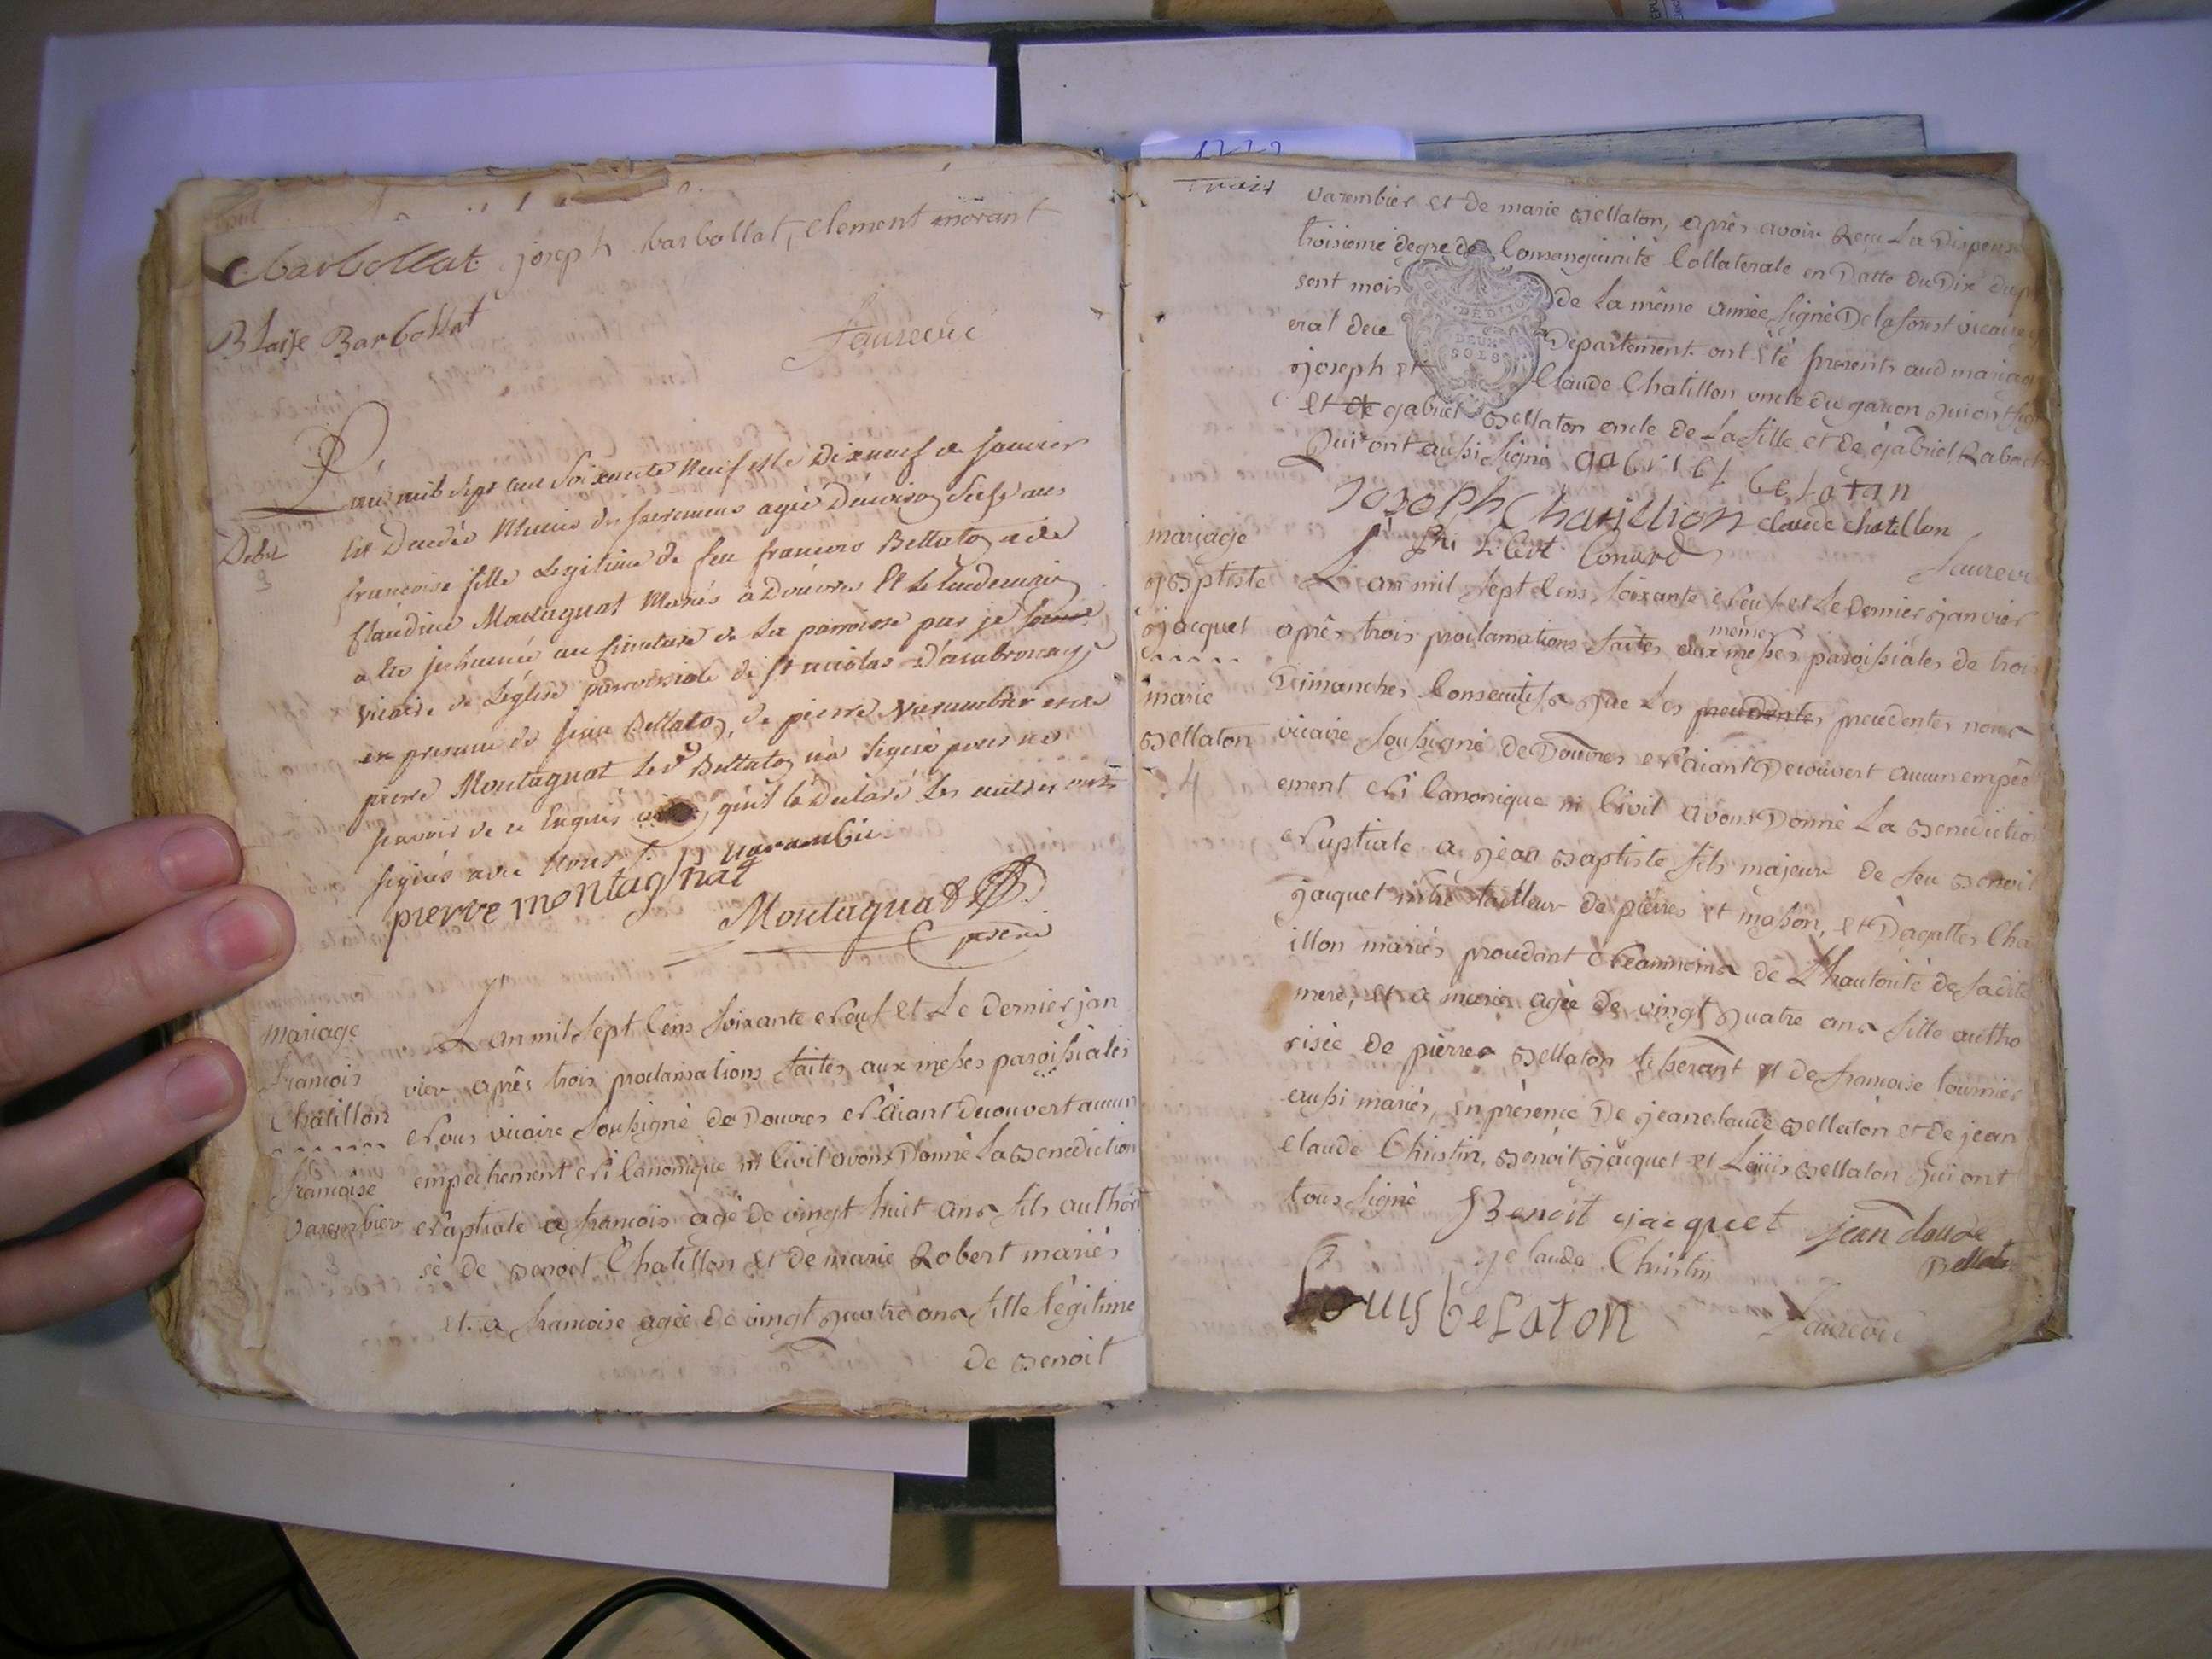 Barbollat joseph barbollat, clement morant
Blaise Barbollat
Faurecui
L'an mil sept cent soixante neuf et le dixneuf de janvier
Deces
3
est decedée munie des sacremens agée d'environ ans
francoise fille Legitime de feu francois Bellaton et de
Claudine Montagnat Mariés à Douvre Et Le Lendemain
a été inhumée au cimetiere de La parroisse par je
vicaire de L'église parroissiale de st nicolas d'ambronay
en presence de jean Bellaton, de pierre varambier et de
pierre Montagnat Led Bellaton n'a signé pour ne
scavoir de ce Enquis qu'il l'a Declaré Les autres ont
signés avec nous
P varambier
pierre montagnat
Montagnat
mariage
francois
Chatillon
francoise
varembier
L'an mil sept Cens soixante Neuf et Le dernier jan
vier après trois proclamations faites aux messes paroissiales
Nous vicaire soussigné de Douvres N'aiant decouvert aucun
empechement Ni Canonique ni Civil avons Donné La Benediction
Nuptiale a francois agé de vingt huit ans fils authori
sé de Benoit Chatillon et de marie Robert mariés
et a francoise agée de vingt quatre ans fille légitime
de Benoit
Trois
varembier et de marie Bellaton, après avoir Reçu La Dispense
troisieme degre de Consanguinité Collaterale en Datte du Dix du pre
sent mois de La même année signé Delaforest vicaire
eral de ce Departement. ont été presents aud mariage
GEN DÉDITION
DEUX
SOLS
joseph et Claude Chatillon oncle du garcon qui ont signé
et de gabriel Bellaton oncle de La fille et de gabriel
Qui ont aussi signé gabriel belatan
Joseph Chatillion claude chatillon
Faurecui
mariage
j Bptiste
jacquet
marie
Bellaton
4
L'an mil sept Cens soixante Neuf et Le Dernier janvier
après trois proclamations faites aux mêmes messes paroissiales de trois
Dimanches Consecutifs que Les precedentes precedentes nous
vicaire soussigné de Douvres N'aiant Decouvert aucun empêc
ement Ni Canonique ni Civil avons Donné La Benediction
Nuptiale a jean Baptiste fils majeur de feu Benoit
jacquet tailleur de pierres et masson, et D'agattes Cha
illon mariés procedant Néanmoins de L'hautorité de sadite
mere, et a marie agée de vingt quatre ans fille autho
risée de pierre Bellaton tisserant et de francoise tournier
aussi mariés, en présence De jeanclaude Bellaton et de jean
claude Christin, Benoit jacquet et Loüis Bellaton qui ont
tous signé Benoit jacquet jean claude
Bellaton
j claude Christin
Louis belaton
Faurecui